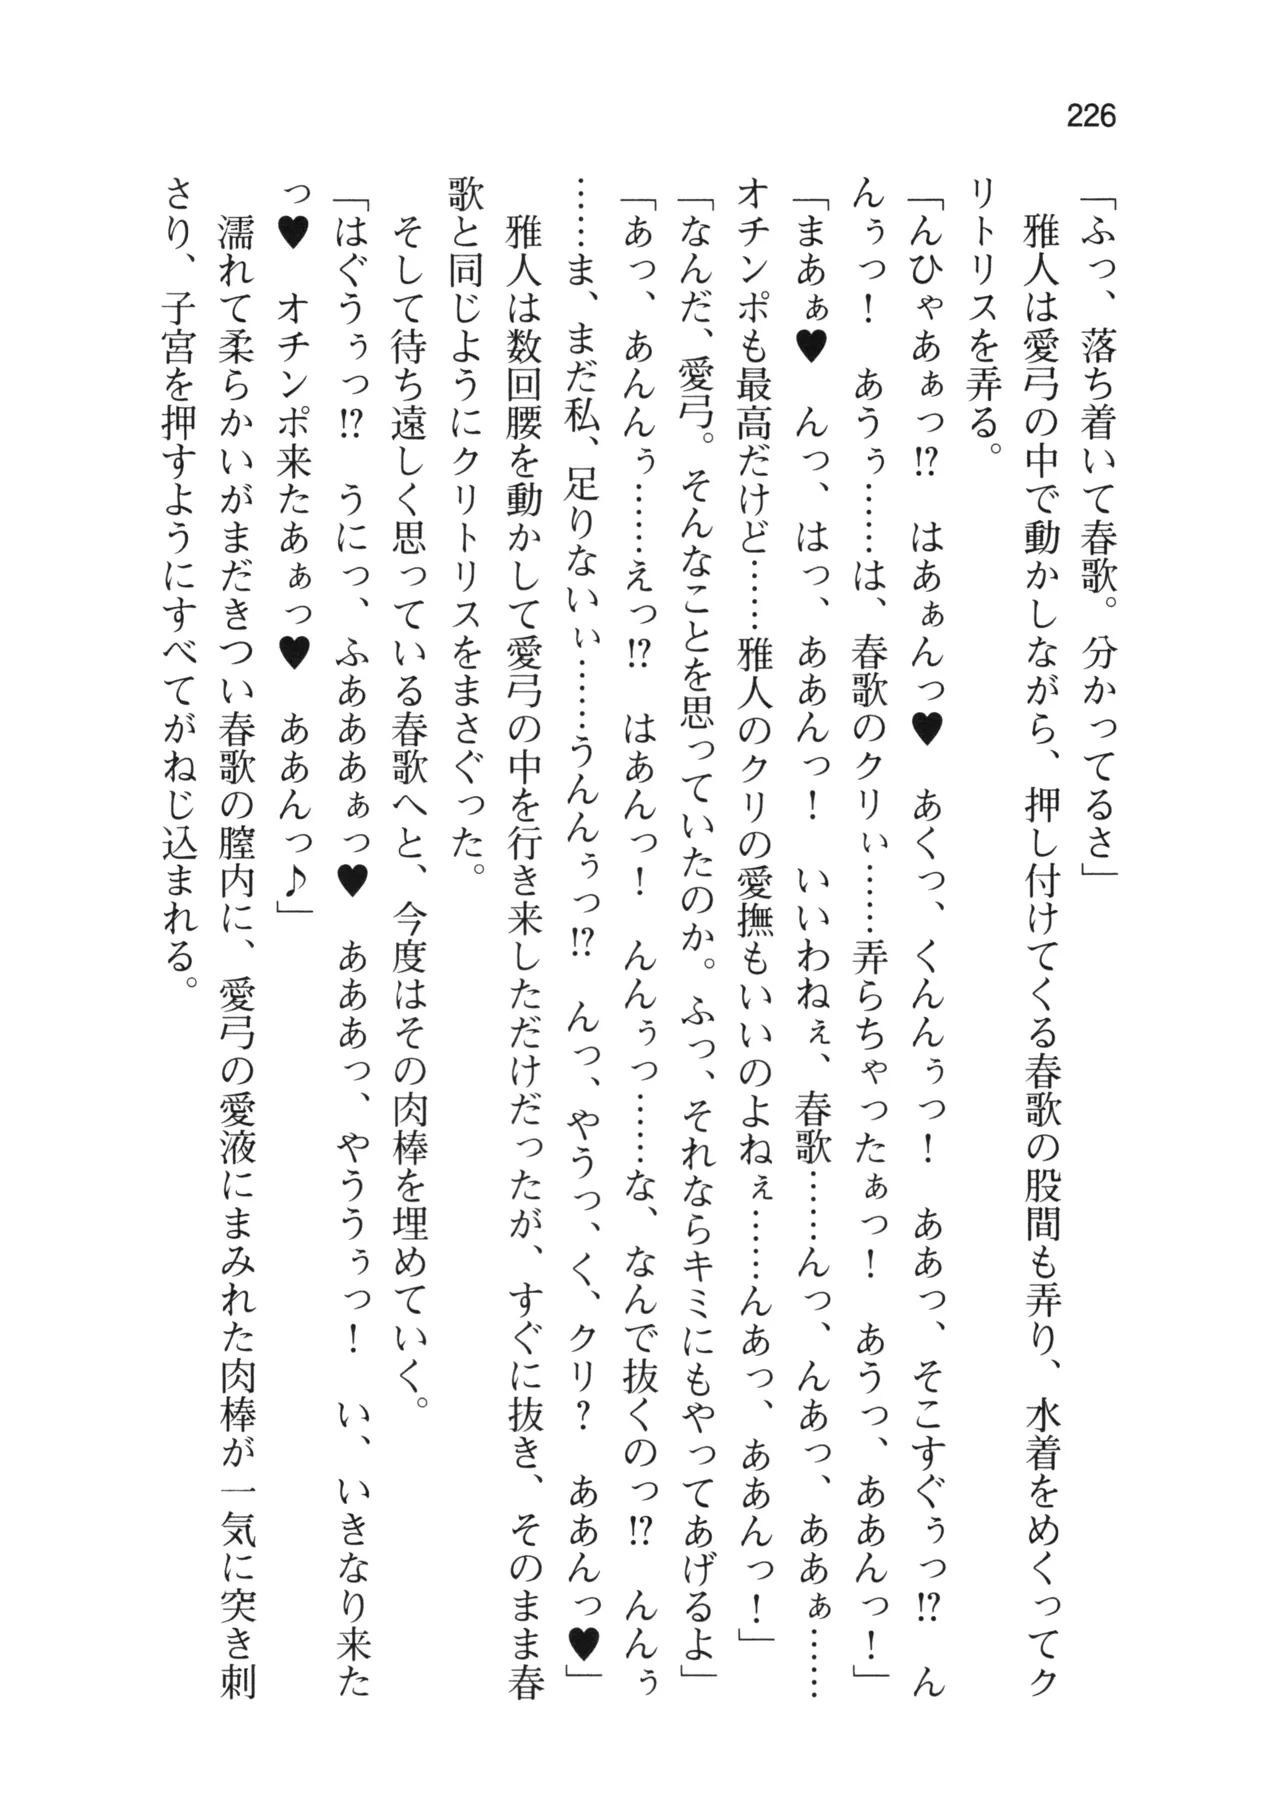 226
「ふっ、落ち着いて春歌。分かってるさ」
雅人は愛弓の中で動かしながら、押し付けてくる春歌の股間も弄り、水着をめくってク
リトリスを弄る。
「んひゃあぁっ!?　はあぁんっ♥　あくっ、くんんぅっ！　ああっ、そこすぐぅっ!?　ん
んぅっ！　あうぅ……は、春歌のクリぃ……弄らちゃったぁっ！　あうっ、ああんっ！」
「まあぁ♥　んっ、はっ、ああんっ！　いいわねぇ、春歌……んっ、んあっ、ああぁ……
オチンポも最高だけど……雅人のクリの愛撫もいいのよねぇ……んあっ、ああんっ！」
「なんだ、愛弓。そんなことを思っていたのか。ふっ、それならキミにもやってあげるよ」
「あっ、あんんぅ……えっ!?　はあんっ！　んんぅっ……な、なんで抜くのっ!?　んんぅ
……ま、まだ私、足りないぃ……うんんぅっ!?　んっ、やうっ、く、クリ？　ああんっ♥」
雅人は数回腰を動かして愛弓の中を行き来しただけだったが、すぐに抜き、そのまま春
歌と同じようにクリトリスをまさぐった。
そして待ち遠しく思っている春歌へと、今度はその肉棒を埋めていく。
「はぐうぅっ!?　うにっ、ふあああぁっ♥　あああっ、やううぅっ！　い、いきなり来た
っ♥　オチンポ来たあぁっ♥　ああんっ♪」
濡れて柔らかいがまだきつい春歌の膣内に、愛弓の愛液にまみれた肉棒が一気に突き刺
さり、子宮を押すようにすべてがねじ込まれる。